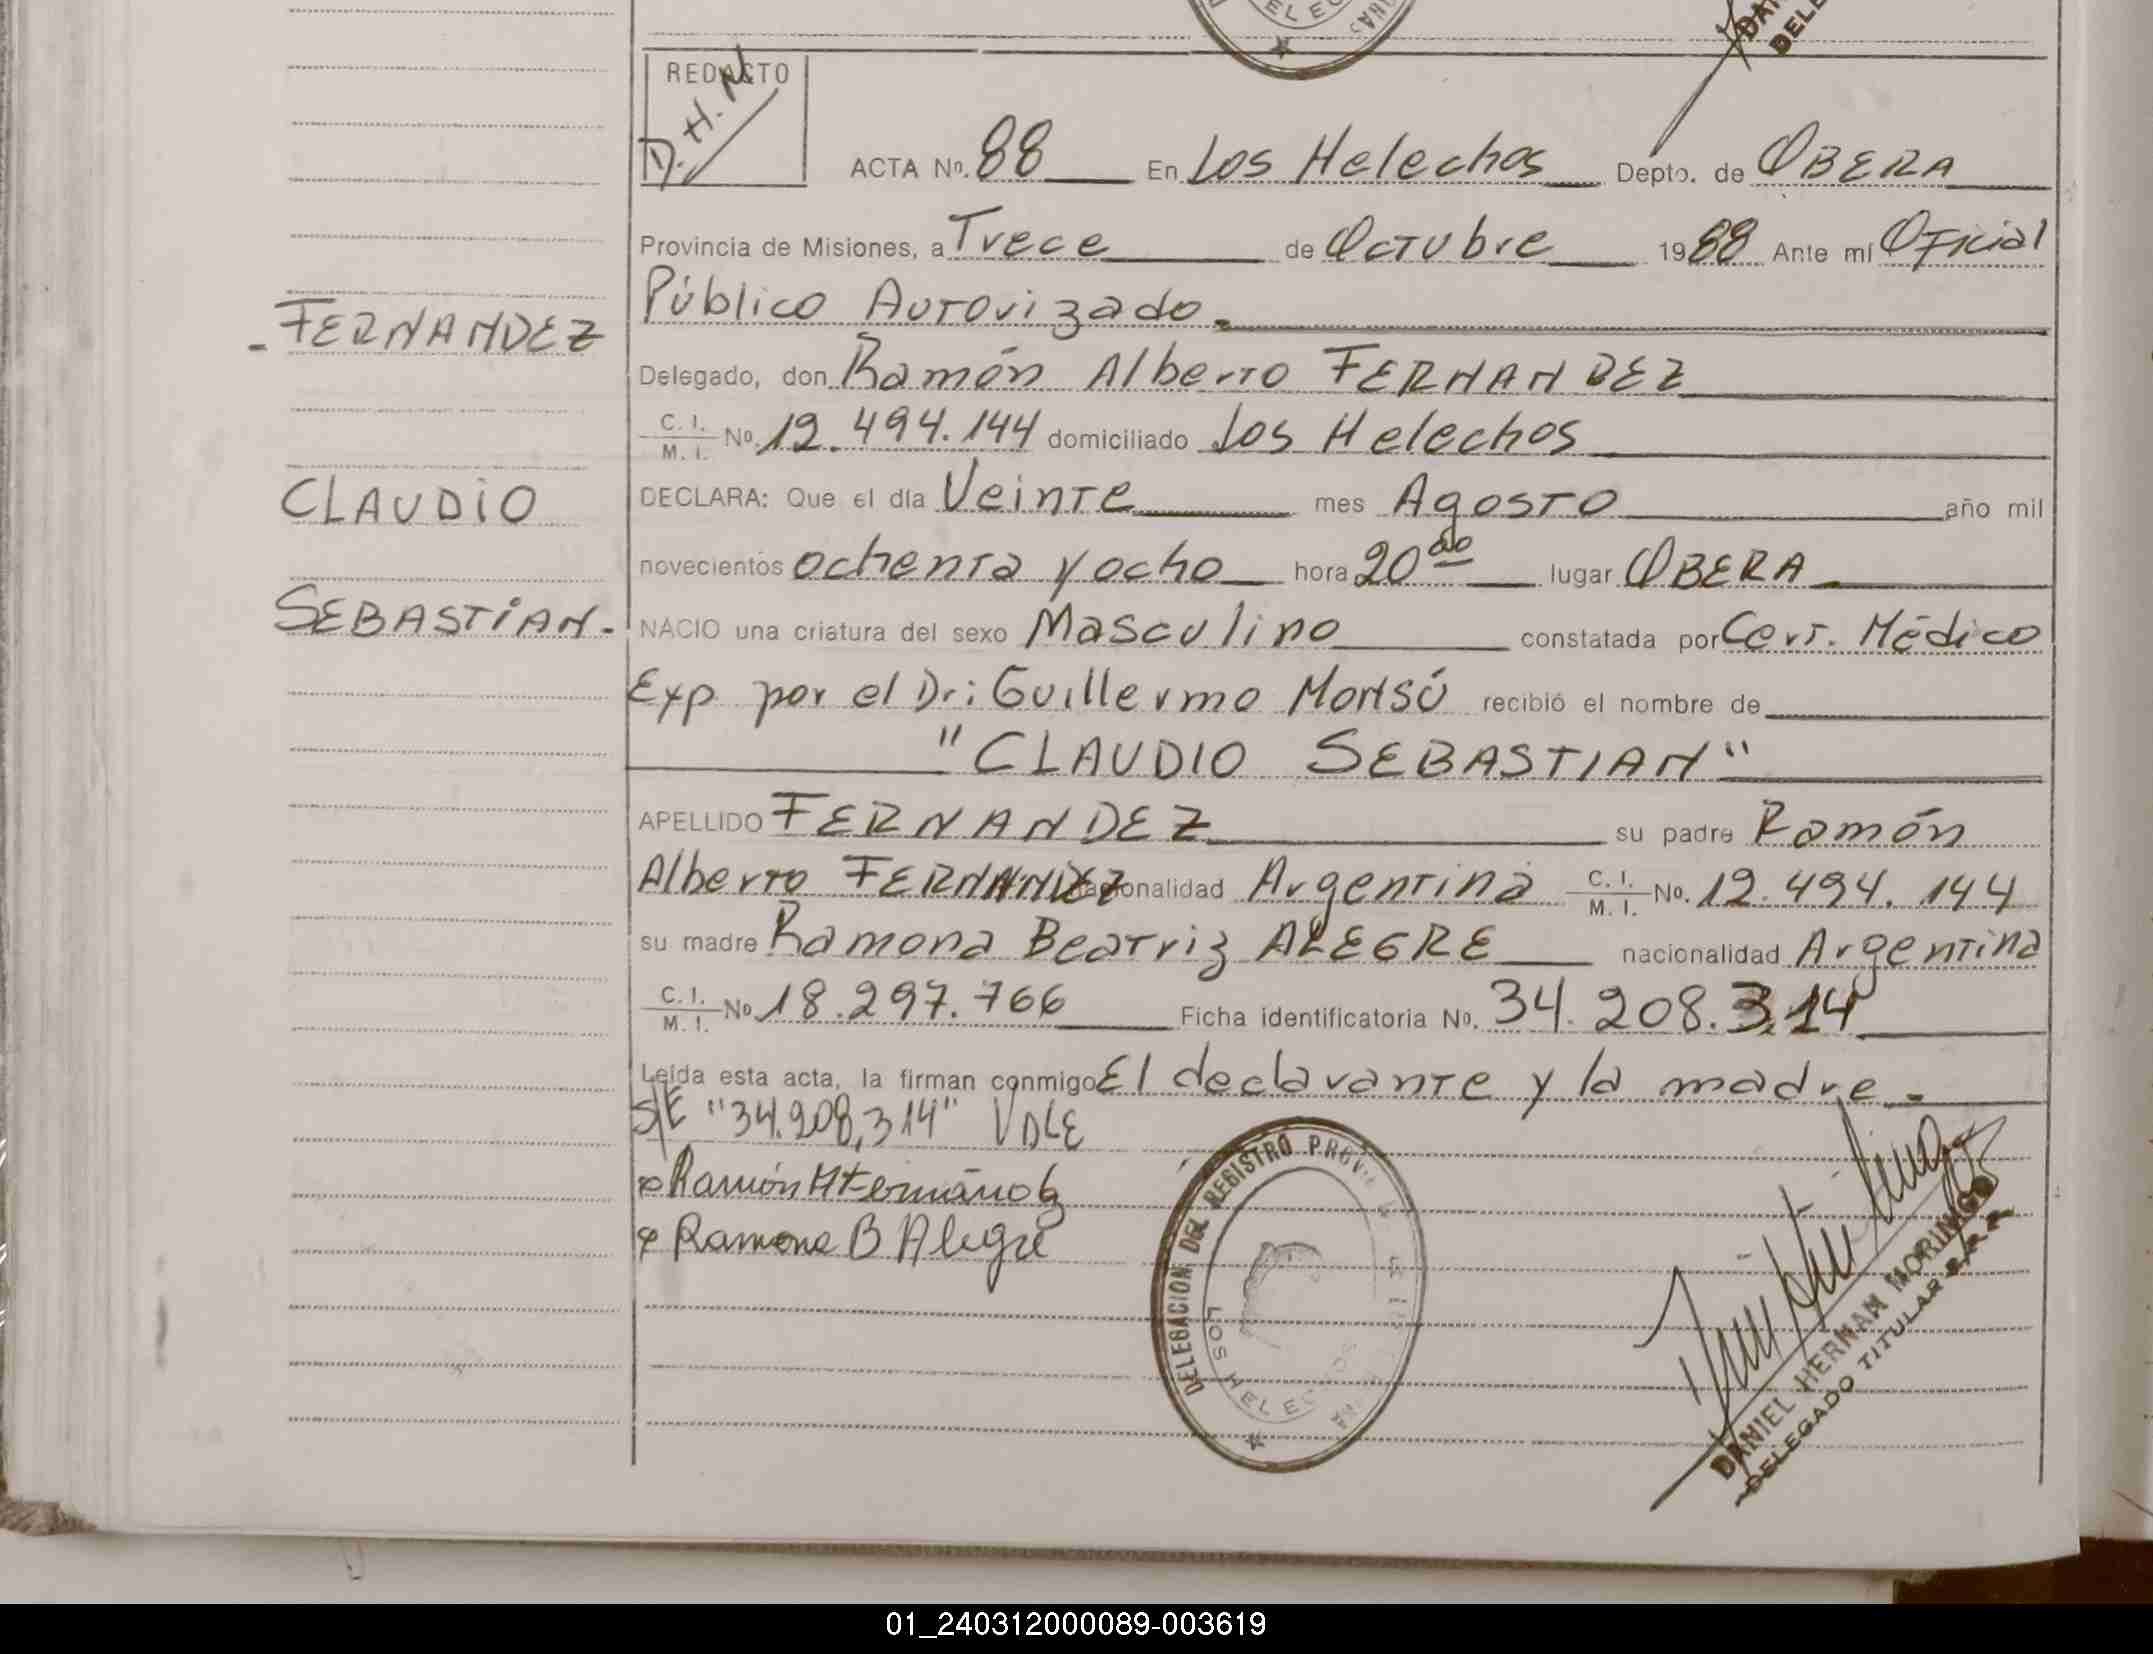 REDACTO
D.H.N
ACTA Nº. 88 En Los Helechos Depto. de OBERA
Provincia de Misiones, a Trece de Octubre 1988 Ante mí Oficial
Público Autorizado.
Delegado, don Ramón Alberto FERNANDEZ
C. I. / M. I. Nº. 12.494.144 domiciliado Los Helechos
DECLARA: Que el día Veinte mes Agosto año mil
novecientos ochenta y ocho hora 20 00 lugar OBERA
NACIO una criatura del sexo Masculino constatada por Cert. Médico
Exp por el Dr: Guillermo recibió el nombre de
"CLAUDIO SEBASTIAN"
APELLIDO FERNANDEZ su padre Ramón
Alberto FERNANDEZ nacionalidad Argentina C. I. / M. I. Nº. 12.494.144
su madre Ramona Beatriz ALEGRE nacionalidad Argentina
C. I. / M. I. Nº 18.297.766 Ficha identificatoria Nº. 34.208.314
Leída esta acta, la firman conmigo El declarante y la madre.-
S/E "34.208,314" VDLE
Ramona B Alegre
- FERNANDEZ
CLAUDIO
SEBASTIAN-
DELEGACION DEL REGISTRO PROV
LOS HELECHOS
DANIEL HERNAN MORINIGO
DELEGADO TITULAR
01_240312000089-003619